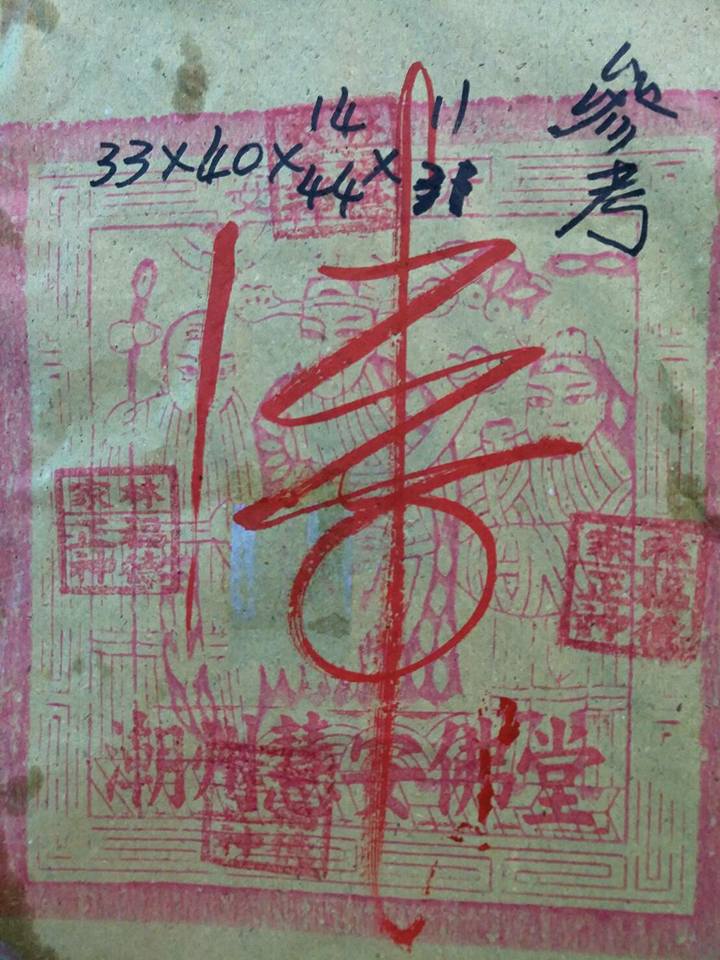 參考
14 11
33×40×44×
林福德
家正神
林福德
家正神
潮州慧 佛堂